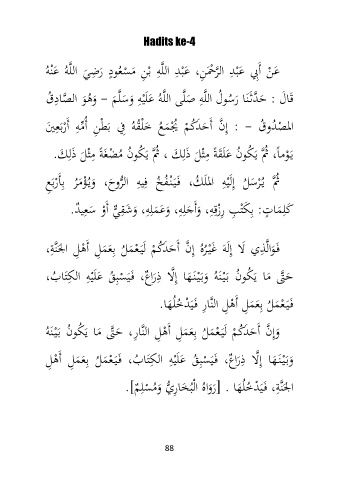 Hadits ke-4
عَنْ أَبِي عَبْدِ الرَّحْمَنِ، عَبْدِ اللَّهِ بْنِ مَسْعُودٍ رَضِيَ اللَّهُ عَنْهُ
قَالَ : حَدَّثَنَا رَسُولُ اللَّهِ صَلَّى اللَّهُ عَلَيْهِ وَسَلَّمَ – وَهُوَ الصَّادِقُ
المَصْدُوقُ – : إِنَّ أَحَدَكُمْ يُجْمَعُ خَلْقُهُ فِي بَطْنِ أُمِّهِ أَرْبَعِينَ
يَوْماً، ثُمَّ يَكُونُ عَلَقَةً مِثْلَ ذَلِكَ ، ثُمَّ يَكُونُ مُضْغَةً مِثْلَ ذَلِكَ.
ثُمَّ يُرْسَلُ إِلَيْهِ المَلَكُ، فَيَنْفُخُ فِيهِ الرُّوحَ، وَيُؤْمَرُ بِأَرْبَعِ
كَلِمَاتٍ: بِكَتْبِ رِزْقِهِ، وَأَجَلِهِ، وَعَمَلِهِ، وَشَقِيٌّ أَوْ سَعِيدٌ.
فَوَالَّذِي لَا إِلَهَ غَيْرُهُ إِنَّ أَحَدَكُمْ لَيَعْمَلُ بِعَمَلِ أَهْلِ الجَنَّةِ،
حَتَّى مَا يَكُونُ بَيْنَهُ وَبَيْنَهَا إِلَّا ذِرَاعٌ، فَيَسْبِقُ عَلَيْهِ الكِتَابُ،
فَيَعْمَلُ بِعَمَلِ أَهْلِ النَّارِ فَيَدْخُلُهَا.
وَإِنَّ أَحَدَكُمْ لَيَعْمَلُ بِعَمَلِ أَهْلِ النَّارِ، حَتَّى مَا يَكُونُ بَيْنَهُ
وَبَيْنَهَا إِلَّا ذِرَاعٌ، فَيَسْبِقُ عَلَيْهِ الكِتَابُ، فَيَعْمَلُ بِعَمَلِ أَهْلِ
الجَنَّةِ، فَيَدْخُلُهَا . [رَوَاهُ الْبُخَارِيُّ وَمُسْلِمٌ].
88